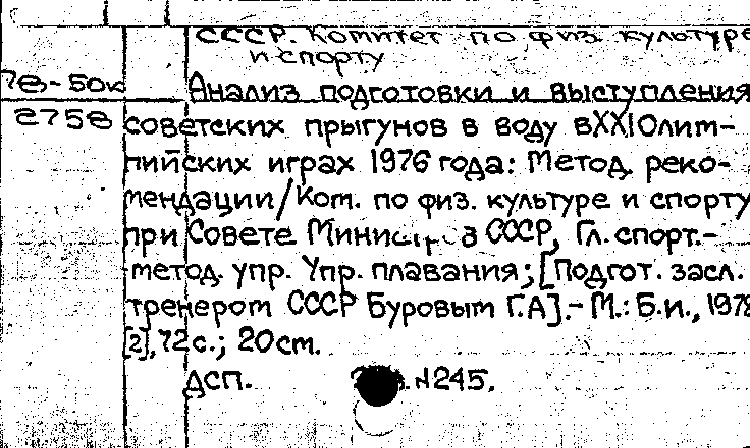 СССР. Комитет по физ. культуре
и спорту
78-50к Анализ подготовки и выступления
2758 советских прыгунов в воду в XXI Олим-
пийских играх 1976 года: Метод. реко-
мендации/Ком. по физ. культуре и спорту
при Совете Министров СССР, Гл. спорт.-
метод. упр. Упр. плавания; [Подгот. засл.
тренером СССР Буровым Г.А].- М.: Б.и., 1978
[2], 72 с.; 20 см.
ДСП. №245.